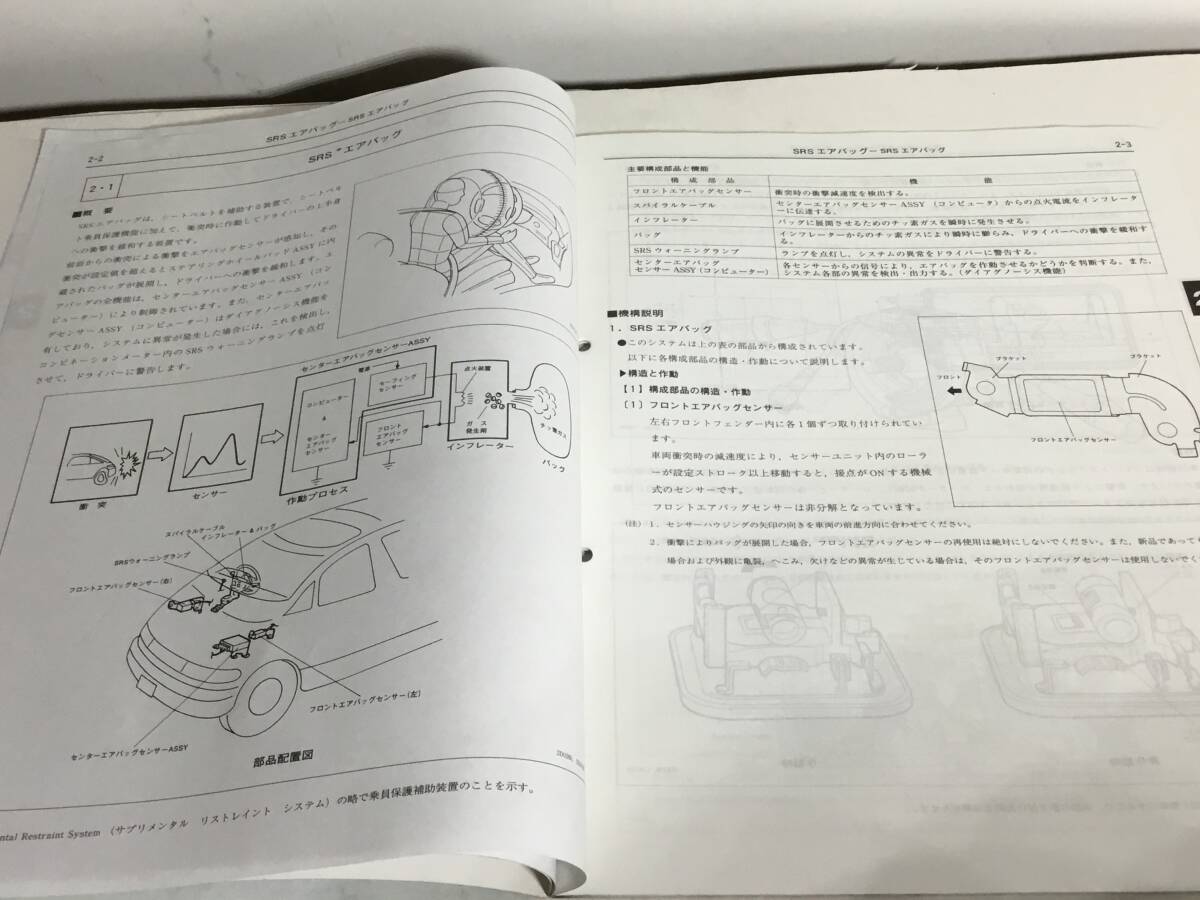 SRS エアバッグー SRS エアバッグ
2-2
SRS *エアバッグ
2-1
■概 要
SRS エアバッグは、シートベルトを補助する装置で、シートベル
ト乗員保護機能に加えて、衝突時に作動してドライバーの上半身
への衝撃を緩和する装置です。
前面からの衝突による衝撃をエアバッグセンサーが感知し、その
衝突が設定値を超えるとステアリングホイールパッド ASSY に内
蔵されたバッグが展開し、ドライバーへの衝撃を緩和します。エ
アバッグの全機能は、センターエアバッグセンサー ASSY（コン
ピューター）により制御されています。また、センターエアバッ
グセンサー ASSY（コンピューター）はダイアグノーシス機能を
有しており、システムに異常が発生した場合には、これを検出し、
コンビネーションメーター内の SRS ウォーニングランプを点灯
させて、ドライバーに警告します。
センターエアバッグセンサーASSY
電源
セーフィング
センサー
点火装置
コンピューター
センター
エアバッグ
センサー
フロント
エアバッグ
センサー
ガス
発生剤
チッ素ガス
インフレーター
バッグ
衝 突
センサー
作動プロセス
スパイラルケーブル
インフレーター & バッグ
SRSウォーニングランプ
フロントエアバッグセンサー(右)
フロントエアバッグセンサー(左)
センターエアバッグセンサーASSY
部品配置図
ntal Restraint System （サプリメンタル リストレイント システム）の略で乗員保護補助装置のことを示す。
SRS エアバッグー SRS エアバッグ
2-3
主要構成部品と機能
構 成 部 品 機 能
フロントエアバッグセンサー 衝突時の衝撃減速度を検出する。
スパイラルケーブル センターエアバッグセンサー ASSY （コンピュータ）からの点火電流をインフレータ
ーに伝達する。
インフレーター バッグに展開させるためのチッ素ガスを瞬時に発生させる。
バッグ インフレーターからのチッ素ガスにより瞬時に膨らみ、ドライバーへの衝撃を緩和す
る。
SRS ウォーニングランプ ランプを点灯し、システムの異常をドライバーに警告する。
センターエアバッグ 各センサーからの信号により、エアバッグを作動させるかどうかを判断する。また、
センサー ASSY (コンピューター) システム各部の異常を検出・出力する。（ダイアグノーシス機能）
2
■機構説明
1．SRS エアバッグ
●このシステムは上の表の部品から構成されています。
以下に各構成部品の構造・作動について説明します。
▶構造と作動
【1】構成部品の構造・作動
〔1〕フロントエアバッグセンサー
左右フロントフェンダー内に各1個ずつ取り付けられてい
ます。
車両衝突時の減速度により、センサーユニット内のローラ
ーが設定ストローク以上移動すると、接点がONする機械
式のセンサーです。
フロントエアバッグセンサーは非分解となっています。
ブラケット
ブラケット
フロント
フロントエアバッグセンサー
（注）1．センサーハウジングの矢印の向きを車両の前進方向に合わせてください。
2．衝撃によりバッグが展開した場合、フロントエアバッグセンサーの再使用は絶対にしないでください。また、新品であっても
場合および外観に亀裂、へこみ、欠けなどの異常が生じている場合は、そのフロントエアバッグセンサーは使用しないでく